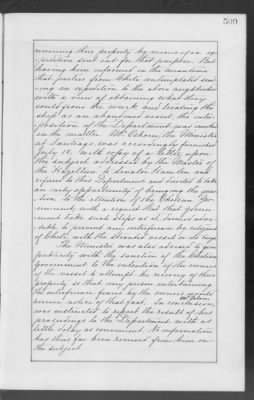 509
covering their property by means of an ex-
pedition sent out for that purpose. But
having been informed in the meantime
that parties from Chile contemplated send-
ing an expedition to the above neighborhood
with a view of obtaining what they
could from the wreck and treating the
ship as an abandoned vessel, the inter-
position of the Department was invoked
in the matter. Mr. Osborn, the Minister
at Santiago, was accordingly furnished
July 12, with copy of a letter upon
the subject addressed by the Master of
the to Senator Hamlin and
referred to this Department and directed to take
an early opportunity of bringing the ques-
tion to the attention of the Chilean Gov-
ernment with a request that that govern-
ment take such steps as it deemed advis-
able to prevent any interference by citizens
of Chile with the stranded vessel or its cargo.
The Minister was also advised to give
publicity with the sanction of the Chilean
Government to the intention of the owners
of the vessel to attempt the recovery of their
property so that any person entertaining
the interference feared by the owners would
receive advice of that fact. In conclusion, Mr. Osborn
was instructed to report the result of his
proceedings to the Department with as
little delay as convenient. No information
has thus far been received from him on
the subject.